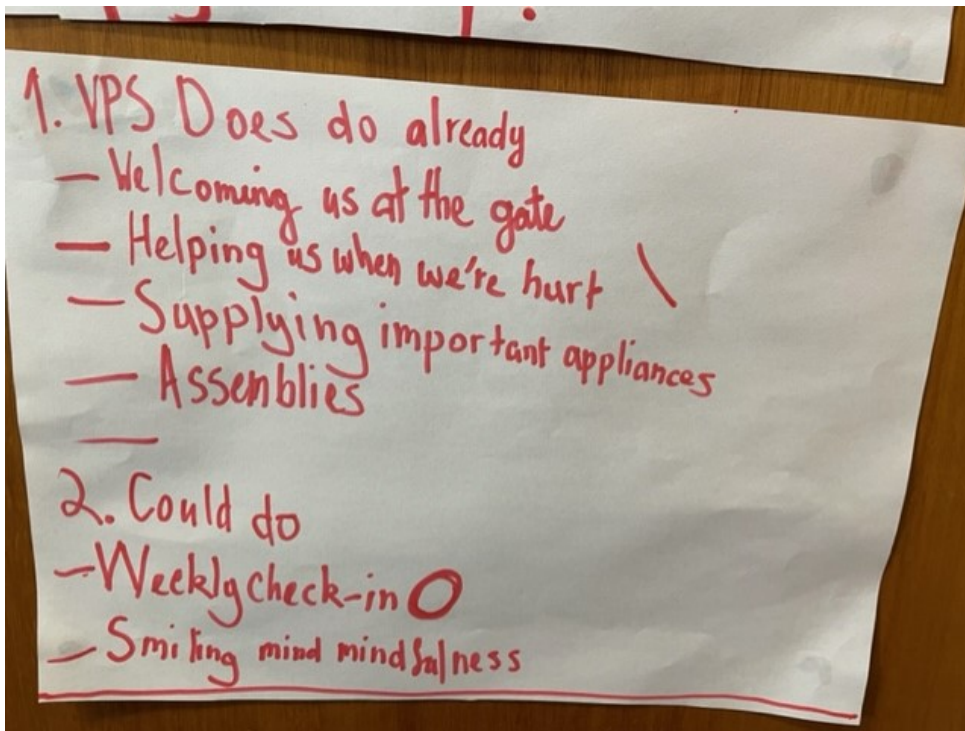 1. VPS Does do already
— Welcoming us at the gate
— Helping us when we're hurt \
— Supplying important appliances
— Assemblies
—
2. Could do
— Weekly check-in O
— Smiling mind mindfulness